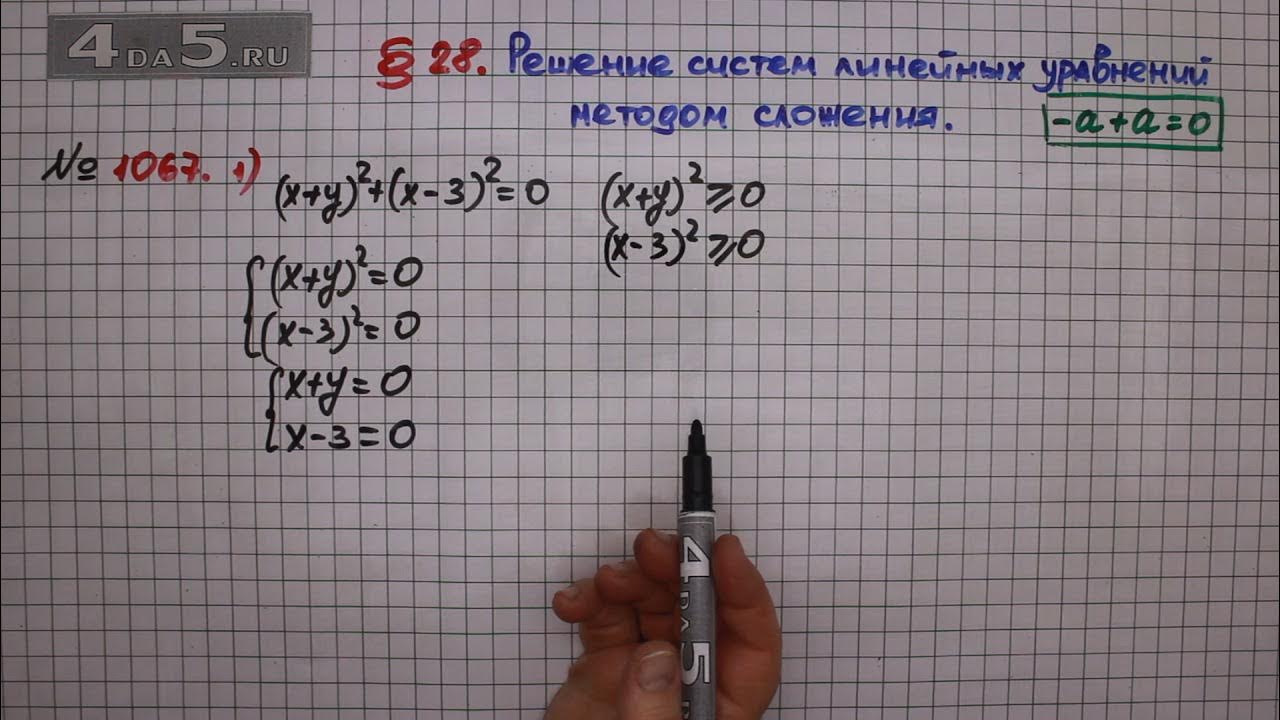 4DA5.RU
§ 28. Решение систем линейных уравнений
методом сложения.
-a+a=0
№ 1067. 1)
(x+y)²+(x-3)²=0
(x+y)²⩾0
(x-3)²⩾0
(x+y)²=0
(x-3)²=0
x+y=0
x-3=0
4DA5